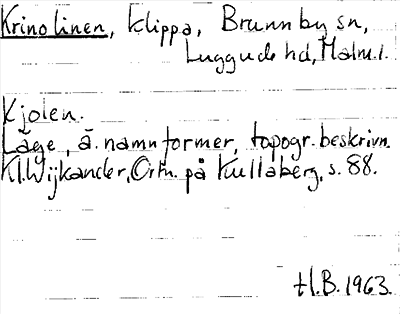 Krinolinen, klippa, Brunnby sn,
Luggude hd, Malm. l.
Kjolen.
Läge, ä. namnformer, topogr. beskrivn.
Kl. Wijkander, Ortn. på Kullaberg, s. 88.
H.B. 1963.